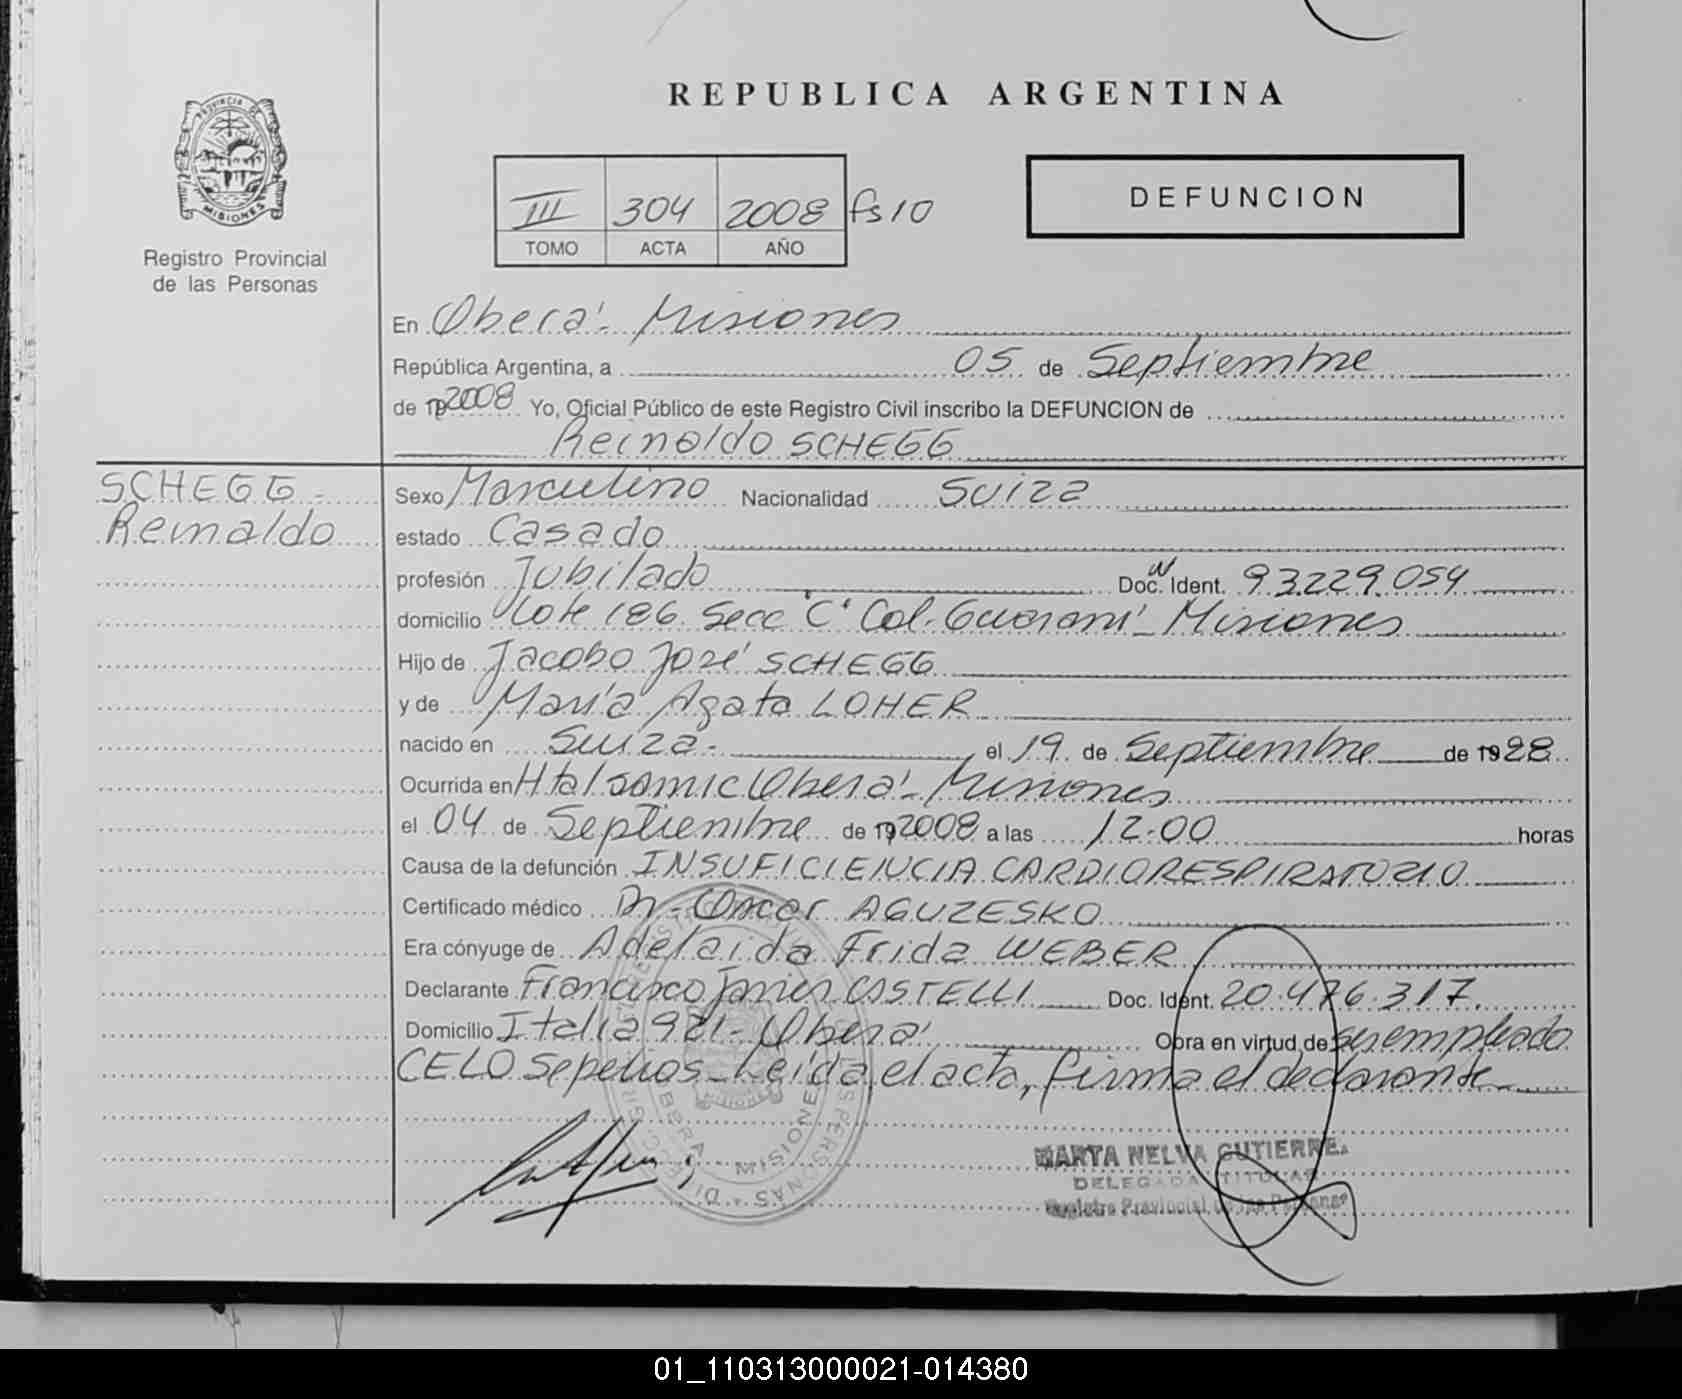 REPUBLICA ARGENTINA
PROVINCIA DE
MISIONES
Registro Provincial
de las Personas
III 304 2008 fs 10
TOMO ACTA AÑO
DEFUNCION
En Oberá - Misiones
República Argentina, a 05 de Septiembre
de 19 2008 Yo, Oficial Público de este Registro Civil inscribo la DEFUNCION de
Reinaldo SCHEGG
SCHEGG -
Reinaldo
Sexo Masculino Nacionalidad Suiza
estado Casado
profesión Jubilado Doc. Ident. 93.229.054
domicilio Lote 186 Secc "C" Col. Guaraní - Misiones
Hijo de Jacobo José SCHEGG
y de María Agata LOHER
nacido en Suiza - el 19 de Septiembre de 1928
Ocurrida en Htal samic Oberá - Misiones
el 04 de Septiembre de 19 2008 a las 12:00 horas
Causa de la defunción INSUFICIENCIA CARDIORESPIRATORIO
Certificado médico Dr. Oscar AGUZESKO
Era cónyuge de Adelaida Frida WEBER
Declarante Francisco Javier CASTELLI Doc. Ident. 20.476.317
Domicilio Italia 921 - Oberá Obra en virtud de ser empleado
CELO Sepelios - Leída el acta, firma el declarante
OBERA - MISIONES
MARTA NELVA GUTIERRE.
DELEGADA TITULAR
Registro Provincial de las Personas
01_110313000021-014380